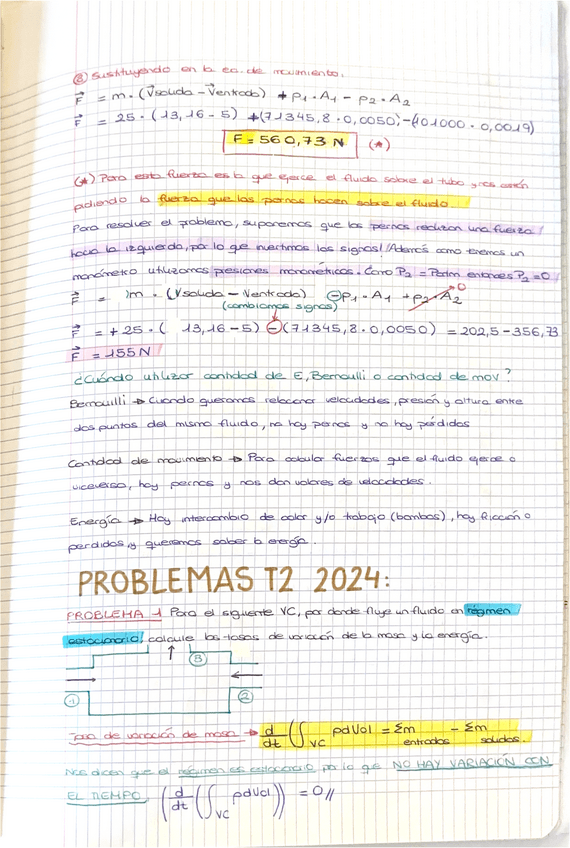 ② Sustituyendo en la ec. de movimiento.
F⃗ = m · (V⃗salida - V⃗entrada) + p₁ · A₁ - p₂ · A₂
F⃗ = 25 · (13,16 - 5) + (71345,8 · 0,0050) - (101000 · 0,0019)
F = 560,73 N (*)
(*) Pero esta fuerza es la que ejerce el fluido sobre el tubo y nos están
pidiendo la fuerza que los pernos hacen sobre el fluido.
Para resolver el problema, suponemos que los pernos realizan una fuerza
hacia la izquierda, por lo que invertimos los signos! Además como tenemos un
manómetro utilizamos presiones manométricas. Como P₂ = Patm entonces P₂ = 0
F⃗ = m · (Vsalida - Ventrada) ⊖ p₁ · A₁ + p₂ · A₂ 0
(cambiamos signos)
F⃗ = + 25 · ( 13,16 - 5) ⊖ (71345,8 · 0,0050) = 202,5 - 356,73
F⃗ = 155 N
¿Cuándo utilizar cantidad de E, Bernoulli o cantidad de mov?
Bernouilli → Cuando queramos relacionar velocidades, presión y altura entre
dos puntos del mismo fluido, no hay pernos y no hay pérdidas
Cantidad de movimiento → Para calcular fuerzas que el fluido ejerce o
viceversa, hay pernos y nos dan valores de velocidades.
Energía → Hay intercambio de calor y/o trabajo (bombas), hay fricción o
perdidas, y queremos saber la energía.
PROBLEMAS T2 2024:
PROBLEMA 1 Para el siguiente VC, por donde fluye un fluido en régimen
estacionario, calcule las tasas de variación de la masa y la energía.
③
① ②
Tasa de variación de masa → d/dt (∫VC ρdVol = Σm entradas - Σm salidas.
Nos dicen que el régimen es estacionario por lo que NO HAY VARIACIÓN CON
EL TIEMPO (d/dt (∫VC ρdVol)) = 0 //